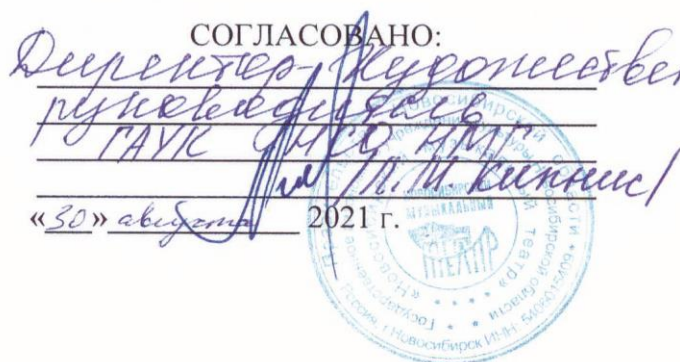 СОГЛАСОВАНО:
Директор-художествен
руководитель
ГАУК НСО НМТ
/Л.М. Кипнис/
«30» августа 2021 г.
МУЗЫКАЛЬНЫЙ
ТЕАТР
Россия, г. Новосибирск ИНН